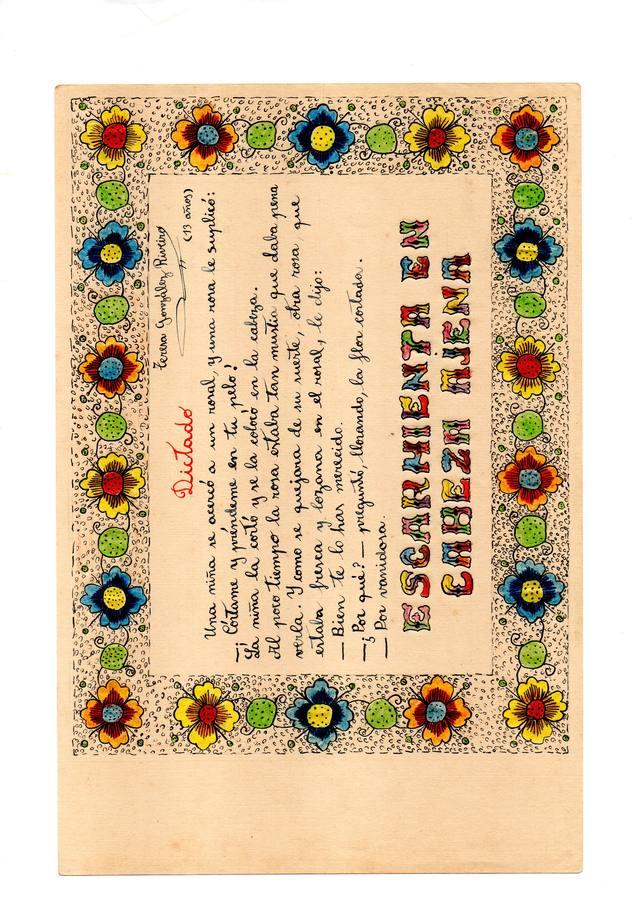 Teresa González Riveiro
(13 años)
Dictado
Una niña se acercó a un rosal, y una rosa le suplicó:
—¡Córtame y préndeme en tu pelo!
La niña la cortó y se la colocó en la cabeza.
Al poco tiempo la rosa estaba tan mustia que daba pena
verla. Y como se quejara de su suerte, otra rosa, que
estaba fresca y lozana en el rosal, le dijo:
— Bien te lo has merecido.
— ¿Por qué? — preguntó, llorando, la flor cortada.
— Por vanidosa.
ESCARMIENTA EN
CABEZA AJENA